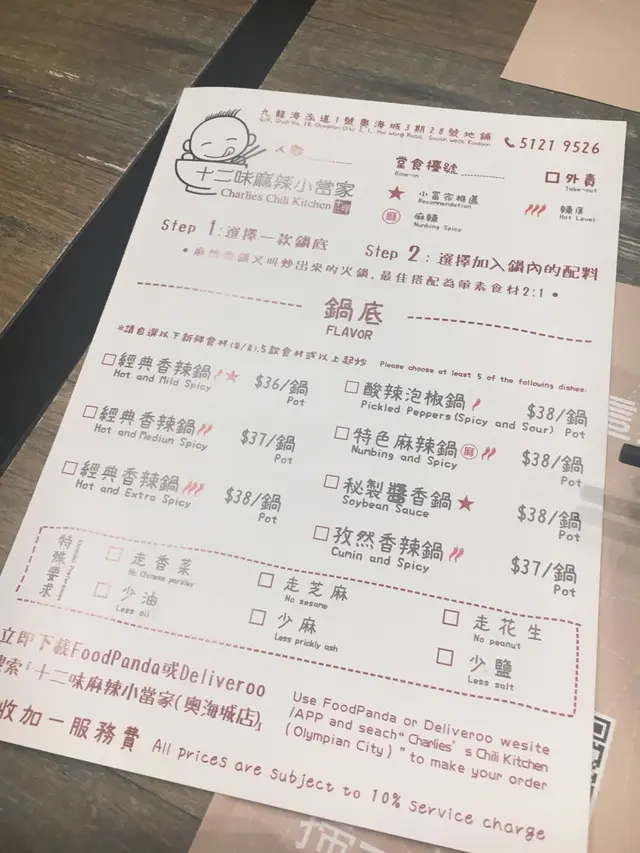 九龍海泓道1號奧海城3期28號地舖
5121 9526
人數
堂食檯號
Dine-in
外賣
Take-out
十二味麻辣小當家
Charlie's Chili Kitchen
小當家推薦
Recommendation
辣度
Hot Level
麻 麻辣
Numbing Spicy
Step 1:選擇一款鍋底
Step 2:選擇加入鍋內的配料
•麻辣香鍋又叫炒出來的火鍋,最佳搭配為葷素食材2:1•
鍋底
FLAVOR
*請自選以下新鮮食材(葷/素),5款食材或以上起炒 Please choose at least 5 of the following dishes:
經典香辣鍋 $36/鍋
Hot and Mild Spicy Pot
經典香辣鍋 $37/鍋
Hot and Medium Spicy Pot
經典香辣鍋 $38/鍋
Hot and Extra Spicy Pot
酸辣泡椒鍋 $38/鍋
Pickled Peppers(Spicy and Sour) Pot
特色麻辣鍋 麻 $38/鍋
Numbing and Spicy Pot
秘製醬香鍋 $38/鍋
Soybean Sauce Pot
孜然香辣鍋 $37/鍋
Cumin and Spicy Pot
特殊要求
走香菜
No Chinese parsley
走芝麻
No sesame
走花生
No peanut
少油
Less oil
少麻
Less prickly ash
少鹽
Less salt
立即下載FoodPanda或Deliveroo
搜索「十二味麻辣小當家(奧海城店)」
收加一服務費
Use FoodPanda or Deliveroo wesite
/APP and seach" Charlies' s Chili Kitchen
(Olympian City) " to make your order
All prices are subject to 10% service charge